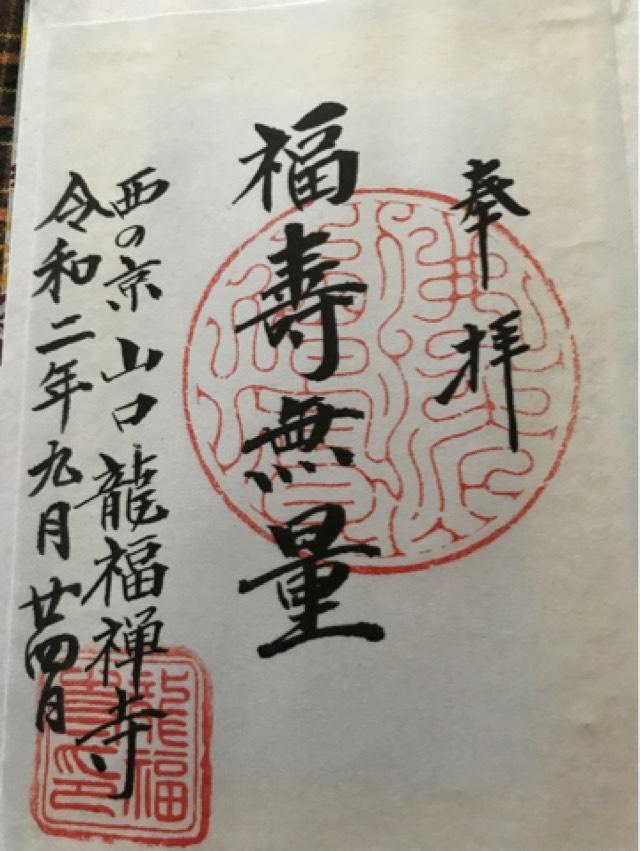 奉拝
福壽無量
西の京山口龍福禅寺
令和二年九月廿四日